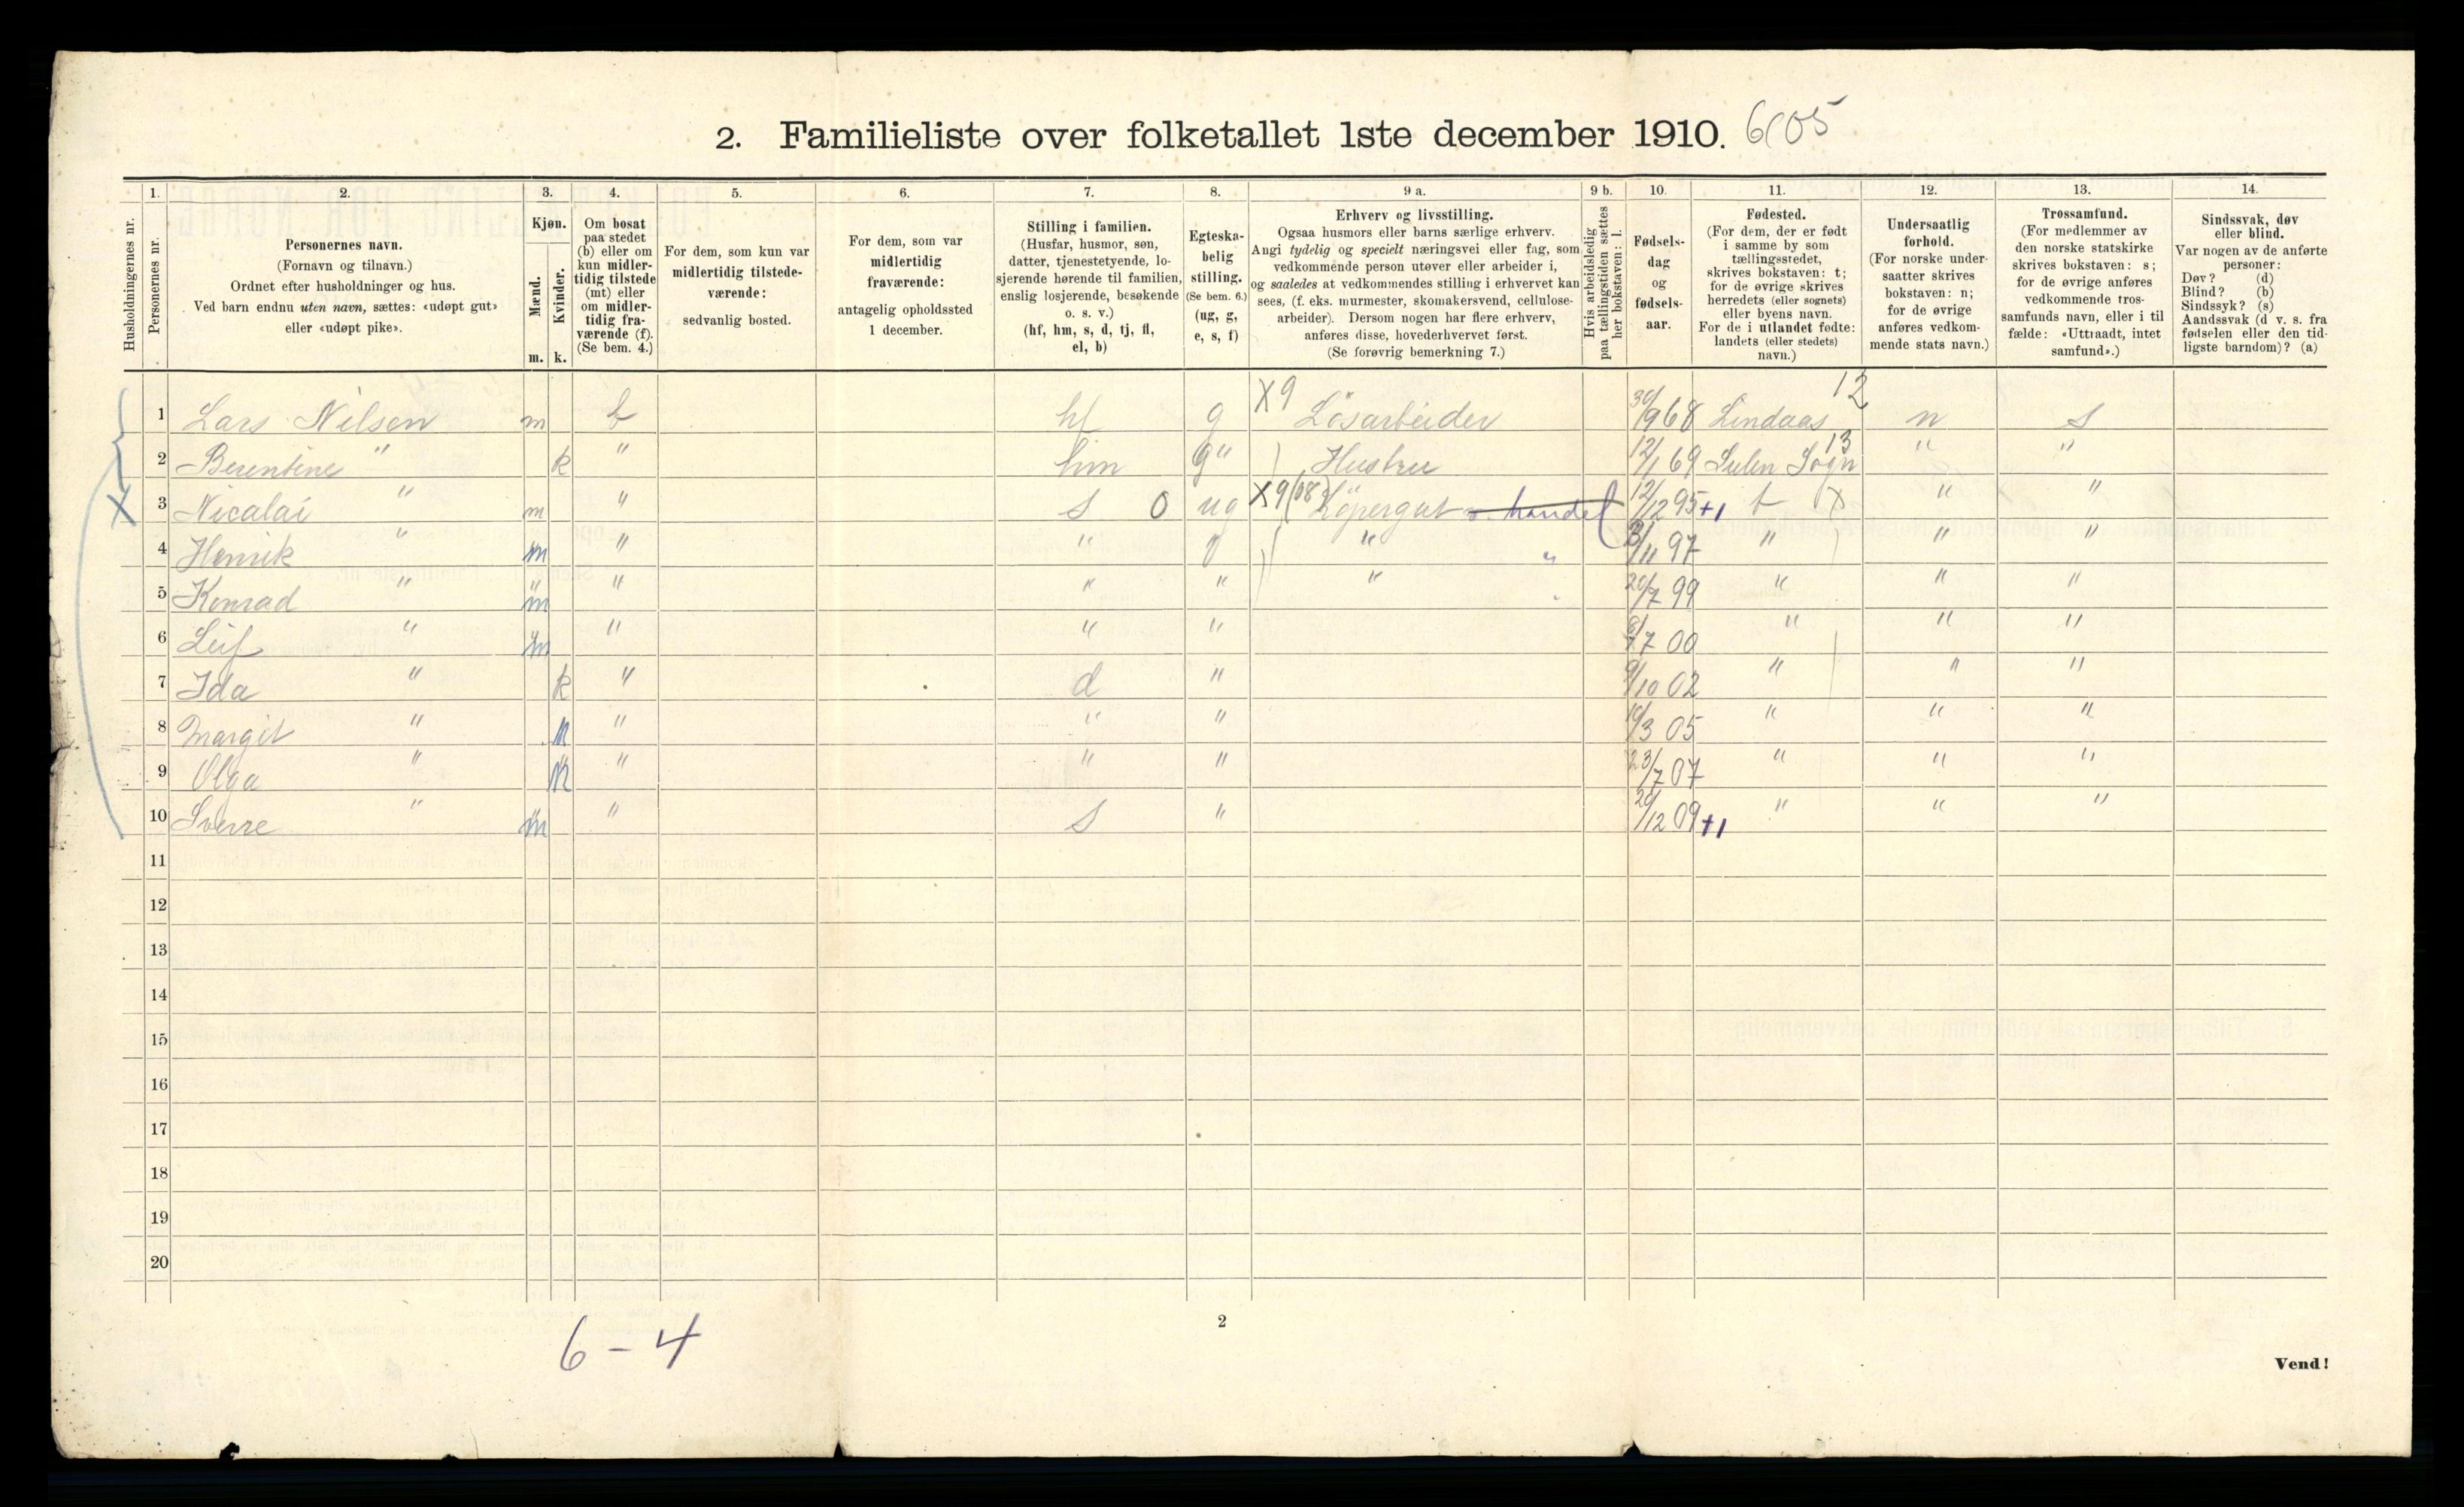 2. Familieliste over folketallet 1ste december 1910. 6105
1. 2. 3. 4. 5. 6. 7. 8. 9 a. 9 b. 10. 11. 12. 13. 14.
Husholdningernes nr.
Personernes nr.
Personernes navn.
(Fornavn og tilnavn.)
Ordnet efter husholdninger og hus.
Ved barn endnu uten navn, sættes: «udøpt gut»
eller «udøpt pike».
Kjøn.
Mænd.
Kvinder.
m. k.
Om bosat
paa stedet
(b) eller om
kun midler-
tidig tilstede
(mt) eller
om midler-
tidig fra-
værende (f).
(Se bem. 4.)
For dem, som kun var
midlertidig tilstede-
værende:
sedvanlig bosted.
For dem, som var
midlertidig
fraværende:
antagelig opholdssted
1 december.
Stilling i familien.
(Husfar, husmor, søn,
datter, tjenestetyende, lo-
sjerende hørende til familien,
enslig losjerende, besøkende
o. s. v.)
(hf, hm, s, d, tj, fl,
el, b)
Egteska-
belig
stilling.
(Se bem. 6.)
(ug, g,
e, s, f)
Erhverv og livsstilling.
Ogsaa husmors eller barns særlige erhverv.
Angi tydelig og specielt næringsvei eller fag, som
vedkommende person utøver eller arbeider i,
og saaledes at vedkommendes stilling i erhvervet kan
sees, (f. eks. murmester, skomakersvend, cellulose-
arbeider). Dersom nogen har flere erhverv,
anføres disse, hovederhvervet først.
(Se forøvrig bemerkning 7.)
Hvis arbeidsledig
paa tællingstiden sættes
her bokstaven: l.
Fødsels-
dag
og
fødsels-
aar.
Fødested.
(For dem, der er født
i samme by som
tællingsstedet,
skrives bokstaven: t;
for de øvrige skrives
herredets (eller sognets)
eller byens navn.
For de i utlandet fødte:
landets (eller stedets)
navn.)
Undersaatlig
forhold.
(For norske under-
saatter skrives
bokstaven: n;
for de øvrige
anføres vedkom-
mende stats navn.)
Trossamfund.
(For medlemmer av
den norske statskirke
skrives bokstaven: s;
for de øvrige anføres
vedkommende tros-
samfunds navn, eller i til
fælde: «Uttraadt, intet
samfund».)
Sindssvak, døv
eller blind.
Var nogen av de anførte
personer:
Døv? (d)
Blind? (b)
Sindssyk? (s)
Aandssvak (d v. s. fra
fødselen eller den tid-
ligste barndom)? (a)
1 Lars Nilsen m b hf g X9 Løsarbeider 30/9 68 Lindaas 12 n s
2 Berentine " k " hm g " Hustru 12/1 69 Sulen Sogn 13 " "
3 Nicolai " m " s 0 ug X9(08) Løpergut v. handel 12/12 95 +1 t X " "
4 Henrik " m " " " " " 3/11 97 " " "
5 Konrad " m " " " " " 20/7 99 " " "
6 Leif " m " " " 8/7 00 " " "
7 Ida " k " d " 9/10 02 " " "
8 Margit " k " " " 10/3 05 " " "
9 Olga " k " " " 23/7 07 " " "
10 Sverre " m " s " 20/12 09 +1 " " "
11
12
13
14
15
16
17
18
19
20
6 - 4
2
Vend!